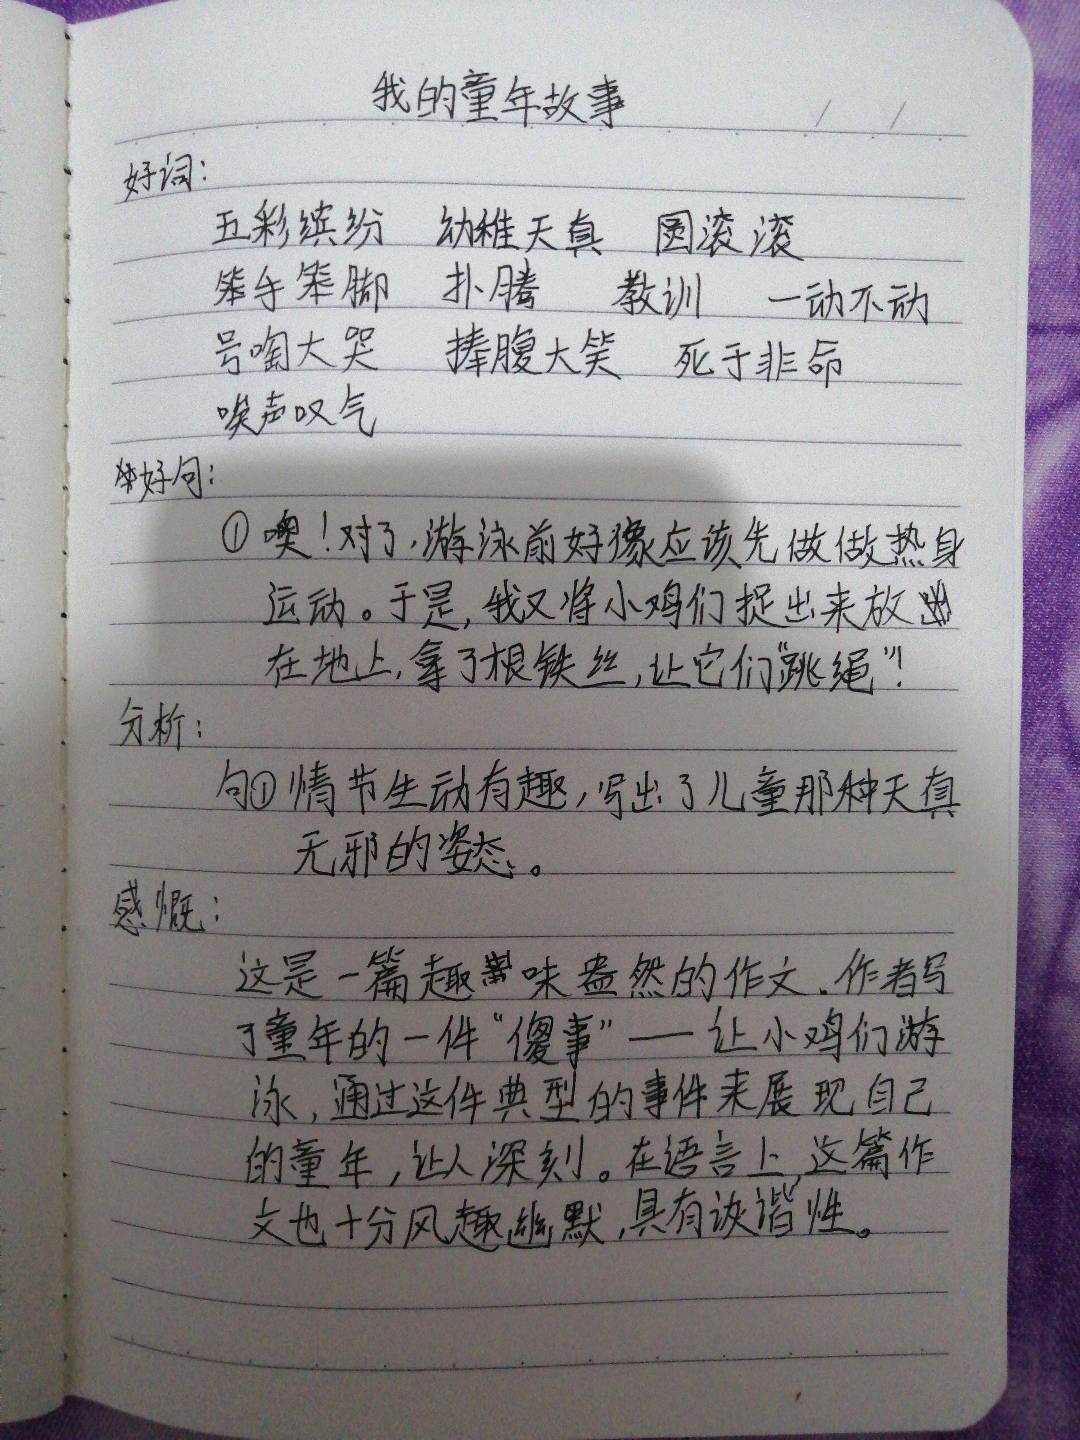 我的童年故事
好词:
五彩缤纷 幼稚天真 圆滚滚
笨手笨脚 扑腾 教训 一动不动
号啕大哭 捧腹大笑 死于非命
唉声叹气
好句:
①噢!对了,游泳前好像应该先做做热身
运动。于是,我又将小鸡们捉出来放
在地上,拿了根铁丝,让它们“跳绳”!
分析:
句①情节生动有趣,写出了儿童那种天真
无邪的姿态。
感慨:
这是一篇趣味盎然的作文.作者写
了童年的一件“傻事”——让小鸡们游
泳,通过这件典型的事件来展现自己
的童年,让人深刻。在语言上,这篇作
文也十分风趣幽默,具有诙谐性。